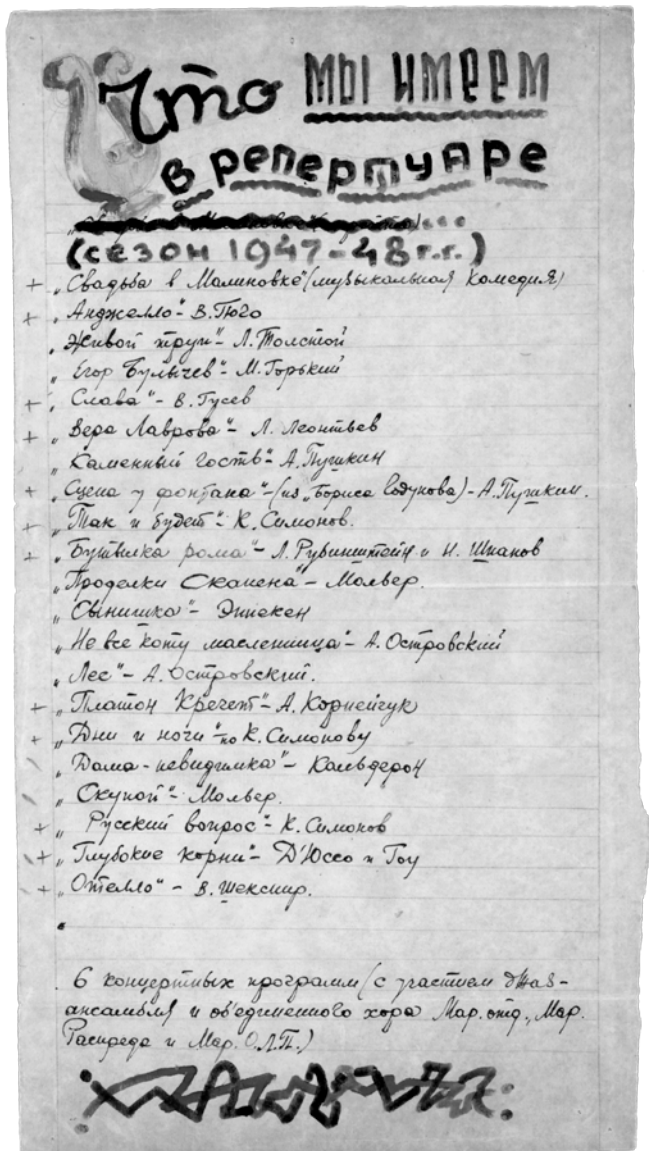 Что мы имеем
в репертуаре
(сезон 1947-48 г.г.)
+ „Свадьба в Малиновке" (музыкальная комедия)
+ „Анджелло" - В. Гюго
„Живой труп" - Л. Толстой
„Егор Булычев" - М. Горький
+ „Слава" - В. Гусев
+ „Вера Лаврова" - Л. Леонтьев
„Каменный гость" - А. Пушкин
+ „Сцена у фонтана" - (из „Бориса Годунова) - А. Пушкин.
+ „Так и будет" - К. Симонов.
+ „Бутылка рома" - Л. Рубинштейн и Н. Шпанов
„Проделки Скапена" - Мольер.
„Сынишка" - Эннекен
„Не все коту масленица" - А. Островский
„Лес" - А. Островский.
+ „Платон Кречет" - А. Корнейчук
+ „Дни и ночи" - по К. Симонову
„Дама-невидимка" - Кальдерон
„Скупой" - Мольер.
+ „Русский вопрос" - К. Симонов
+ „Глубокие корни" - Д'Юссо и Гоу
+ „Отелло" - В. Шекспир.
6 концертных программ (с участием джаз-
ансамбля и об'единенного хора Мар. отд., Мар.
Распреда и Мар. О.Л.П.)